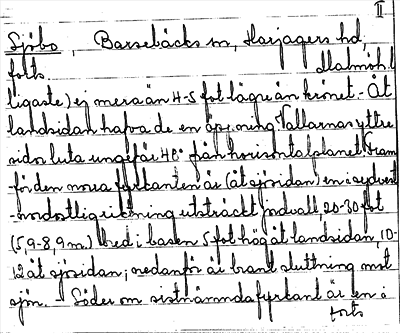 II
Sjöbo, Barsebäcks sn, Harjagers hd,
forts. Malmöh. l.
ligaste) ej mera än 4-5 fot lägre än krönet. - Åt
landsidan hafva de en öppning. Vallarnas yttre
sidor luta ungefär 40° från horisontalplanet. Fram-
för den norra fyrkanten är (åt sjösidan) en i sydvest
-nordostlig riktning utsträckt jordvall, 20-30 fot
(5,9-8,9 m.) bred i basen 5 fot hög åt landsidan, 10-
12 åt sjösidan; nedanför är brant sluttning mot
sjön. - Söder om sistnämnda fyrkant är en i
forts